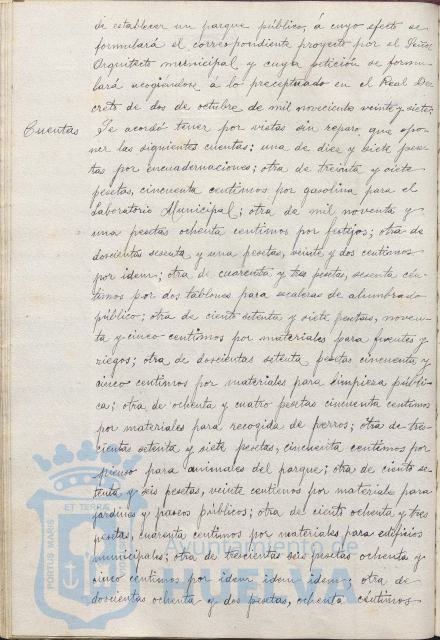 de establecer un parque público, á cuyo efecto se
formulará el correspondiente proyecto por el Señor
Arquitecto municipal y cuya petición se formu-
lará acogiéndose á lo preceptuado en el Real De-
creto de dos de octubre de mil novecientos veinte y siete.
Cuentas Se acordó tener por vistas sin reparo que opo-
ner las siguientes cuentas: una de diez y siete pese-
tas por encuadernaciones; otra de treinta y siete
pesetas, cincuenta centimos por gasolina para el
Laboratorio Municipal; otra de mil noventa y
una pesetas ochenta centimos por festejos; otra de
doscientas sesenta y una pesetas, veinte y dos centimos
por idem; otra de cuarenta y tres pesetas, sesenta cén-
timos por dos tablones para escaleras de alumbrado
público; otra de ciento setenta y siete pesetas, noven-
ta y cinco centimos por materiales para fuentes y
riegos; otra de doscientas setenta pesetas cincuenta y
cinco centimos por materiales para limpieza públi-
ca; otra de ochenta y cuatro pesetas cincuenta centimos
por materiales para recogida de perros; otra de tres-
cientas setenta y siete pesetas, cincuenta centimos por
pienso para animales del parque; otra de ciento se-
tenta y seis pesetas, veinte centimos por materiales para
jardines y paseos públicos; otra de ciento ochenta y tres
pesetas, cuarenta centimos por materiales para edificios
municipales; otra de trescientas seis pesetas ochenta y
cinco centimos por idem idem idem; otra de
doscientas ochenta y dos pesetas, ochenta céntimos
ET TERRÆ
PORTUS MARIS
Ayuntamiento de
HUELVA